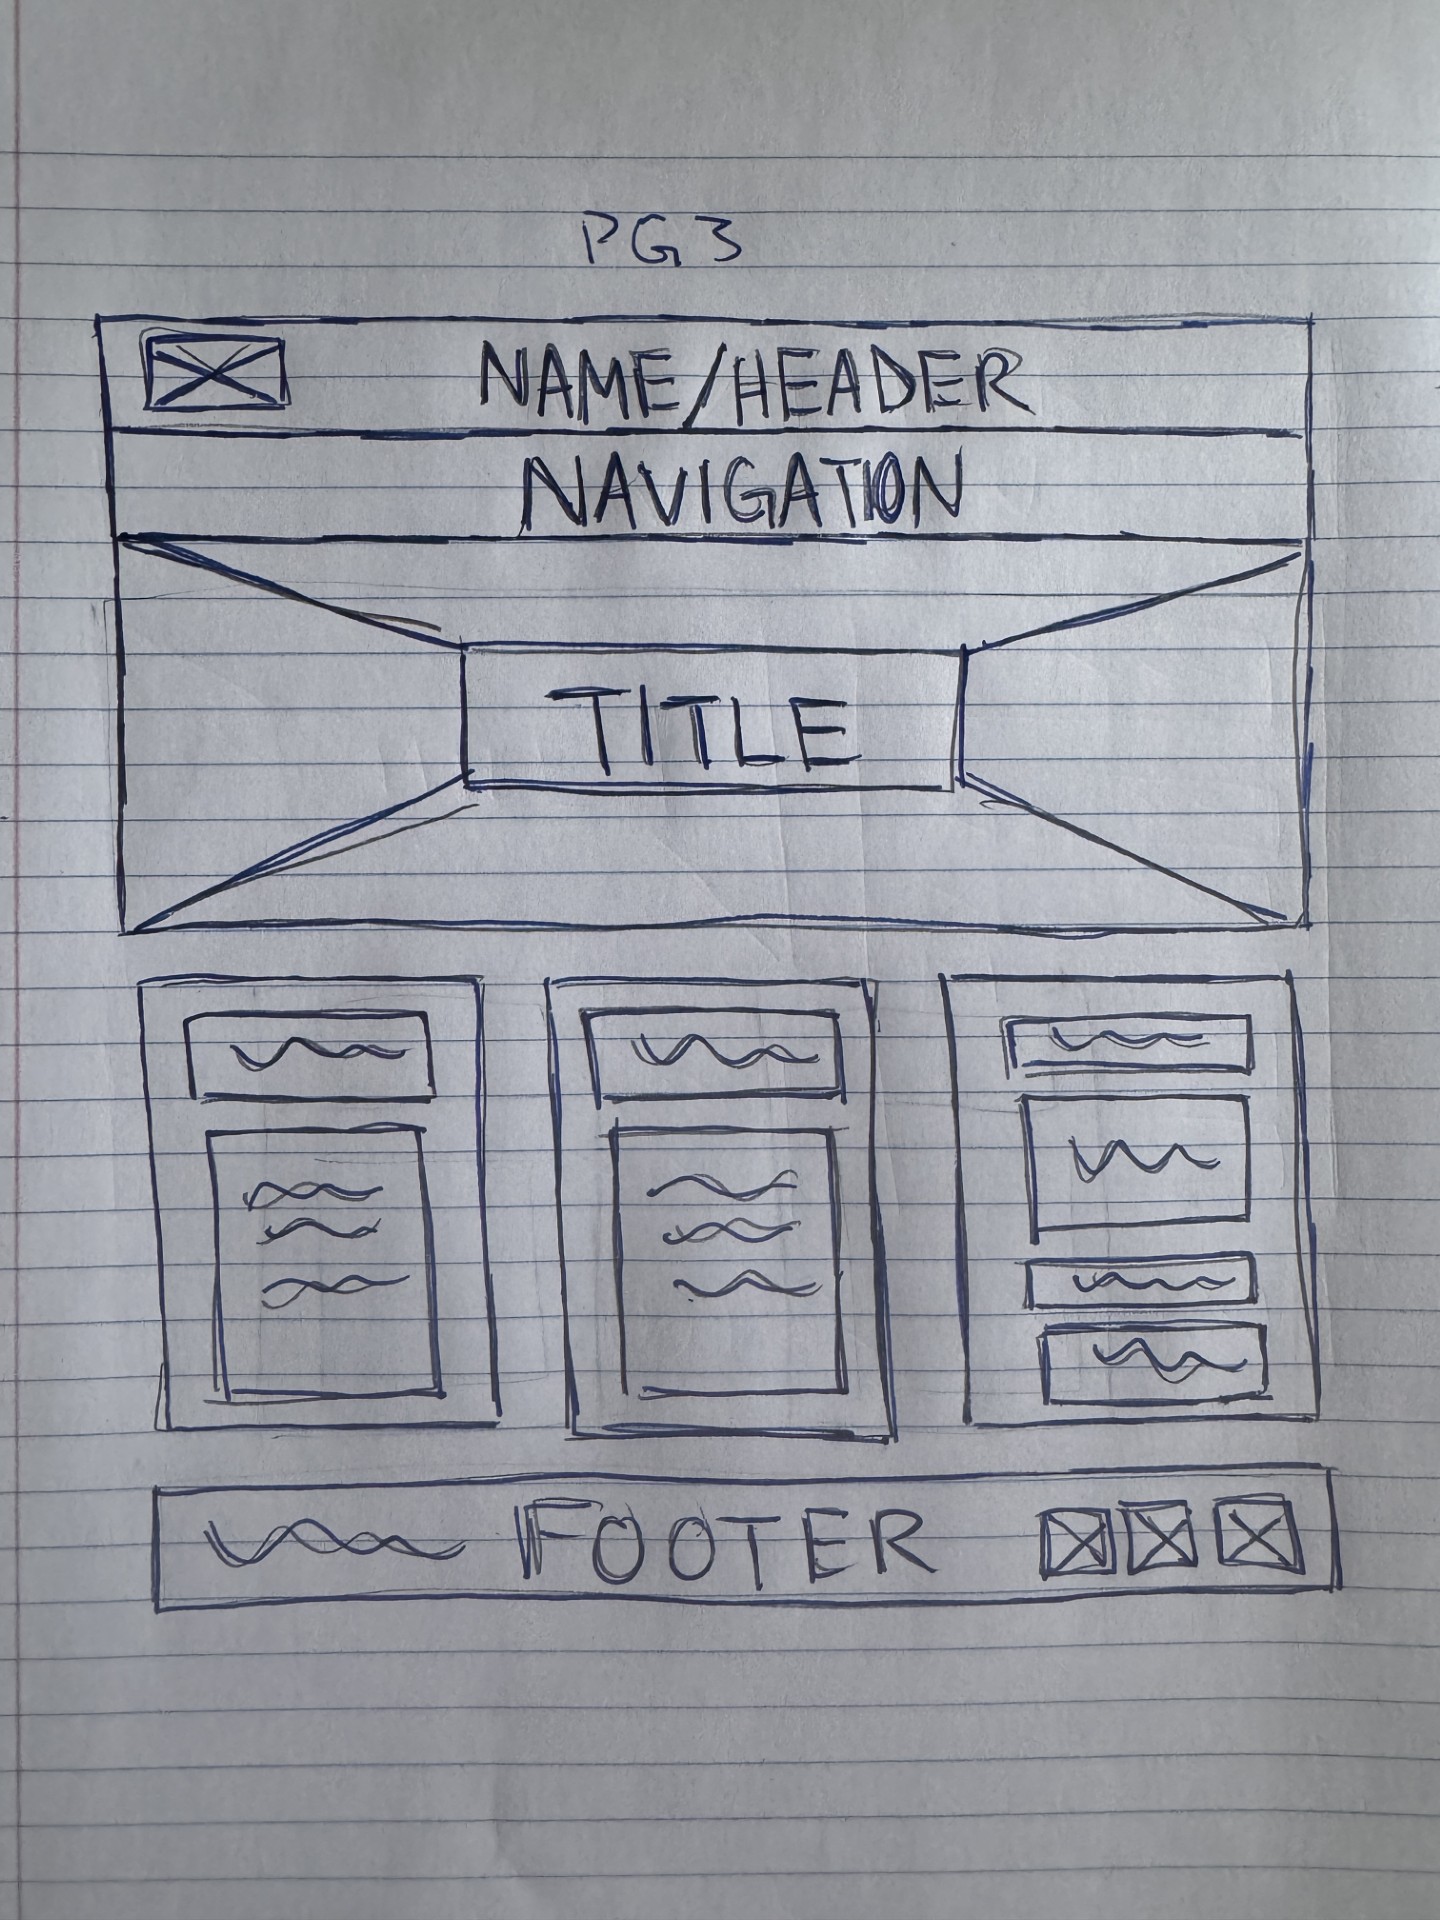 PG 3
NAME/HEADER
NAVIGATION
TITLE
FOOTER